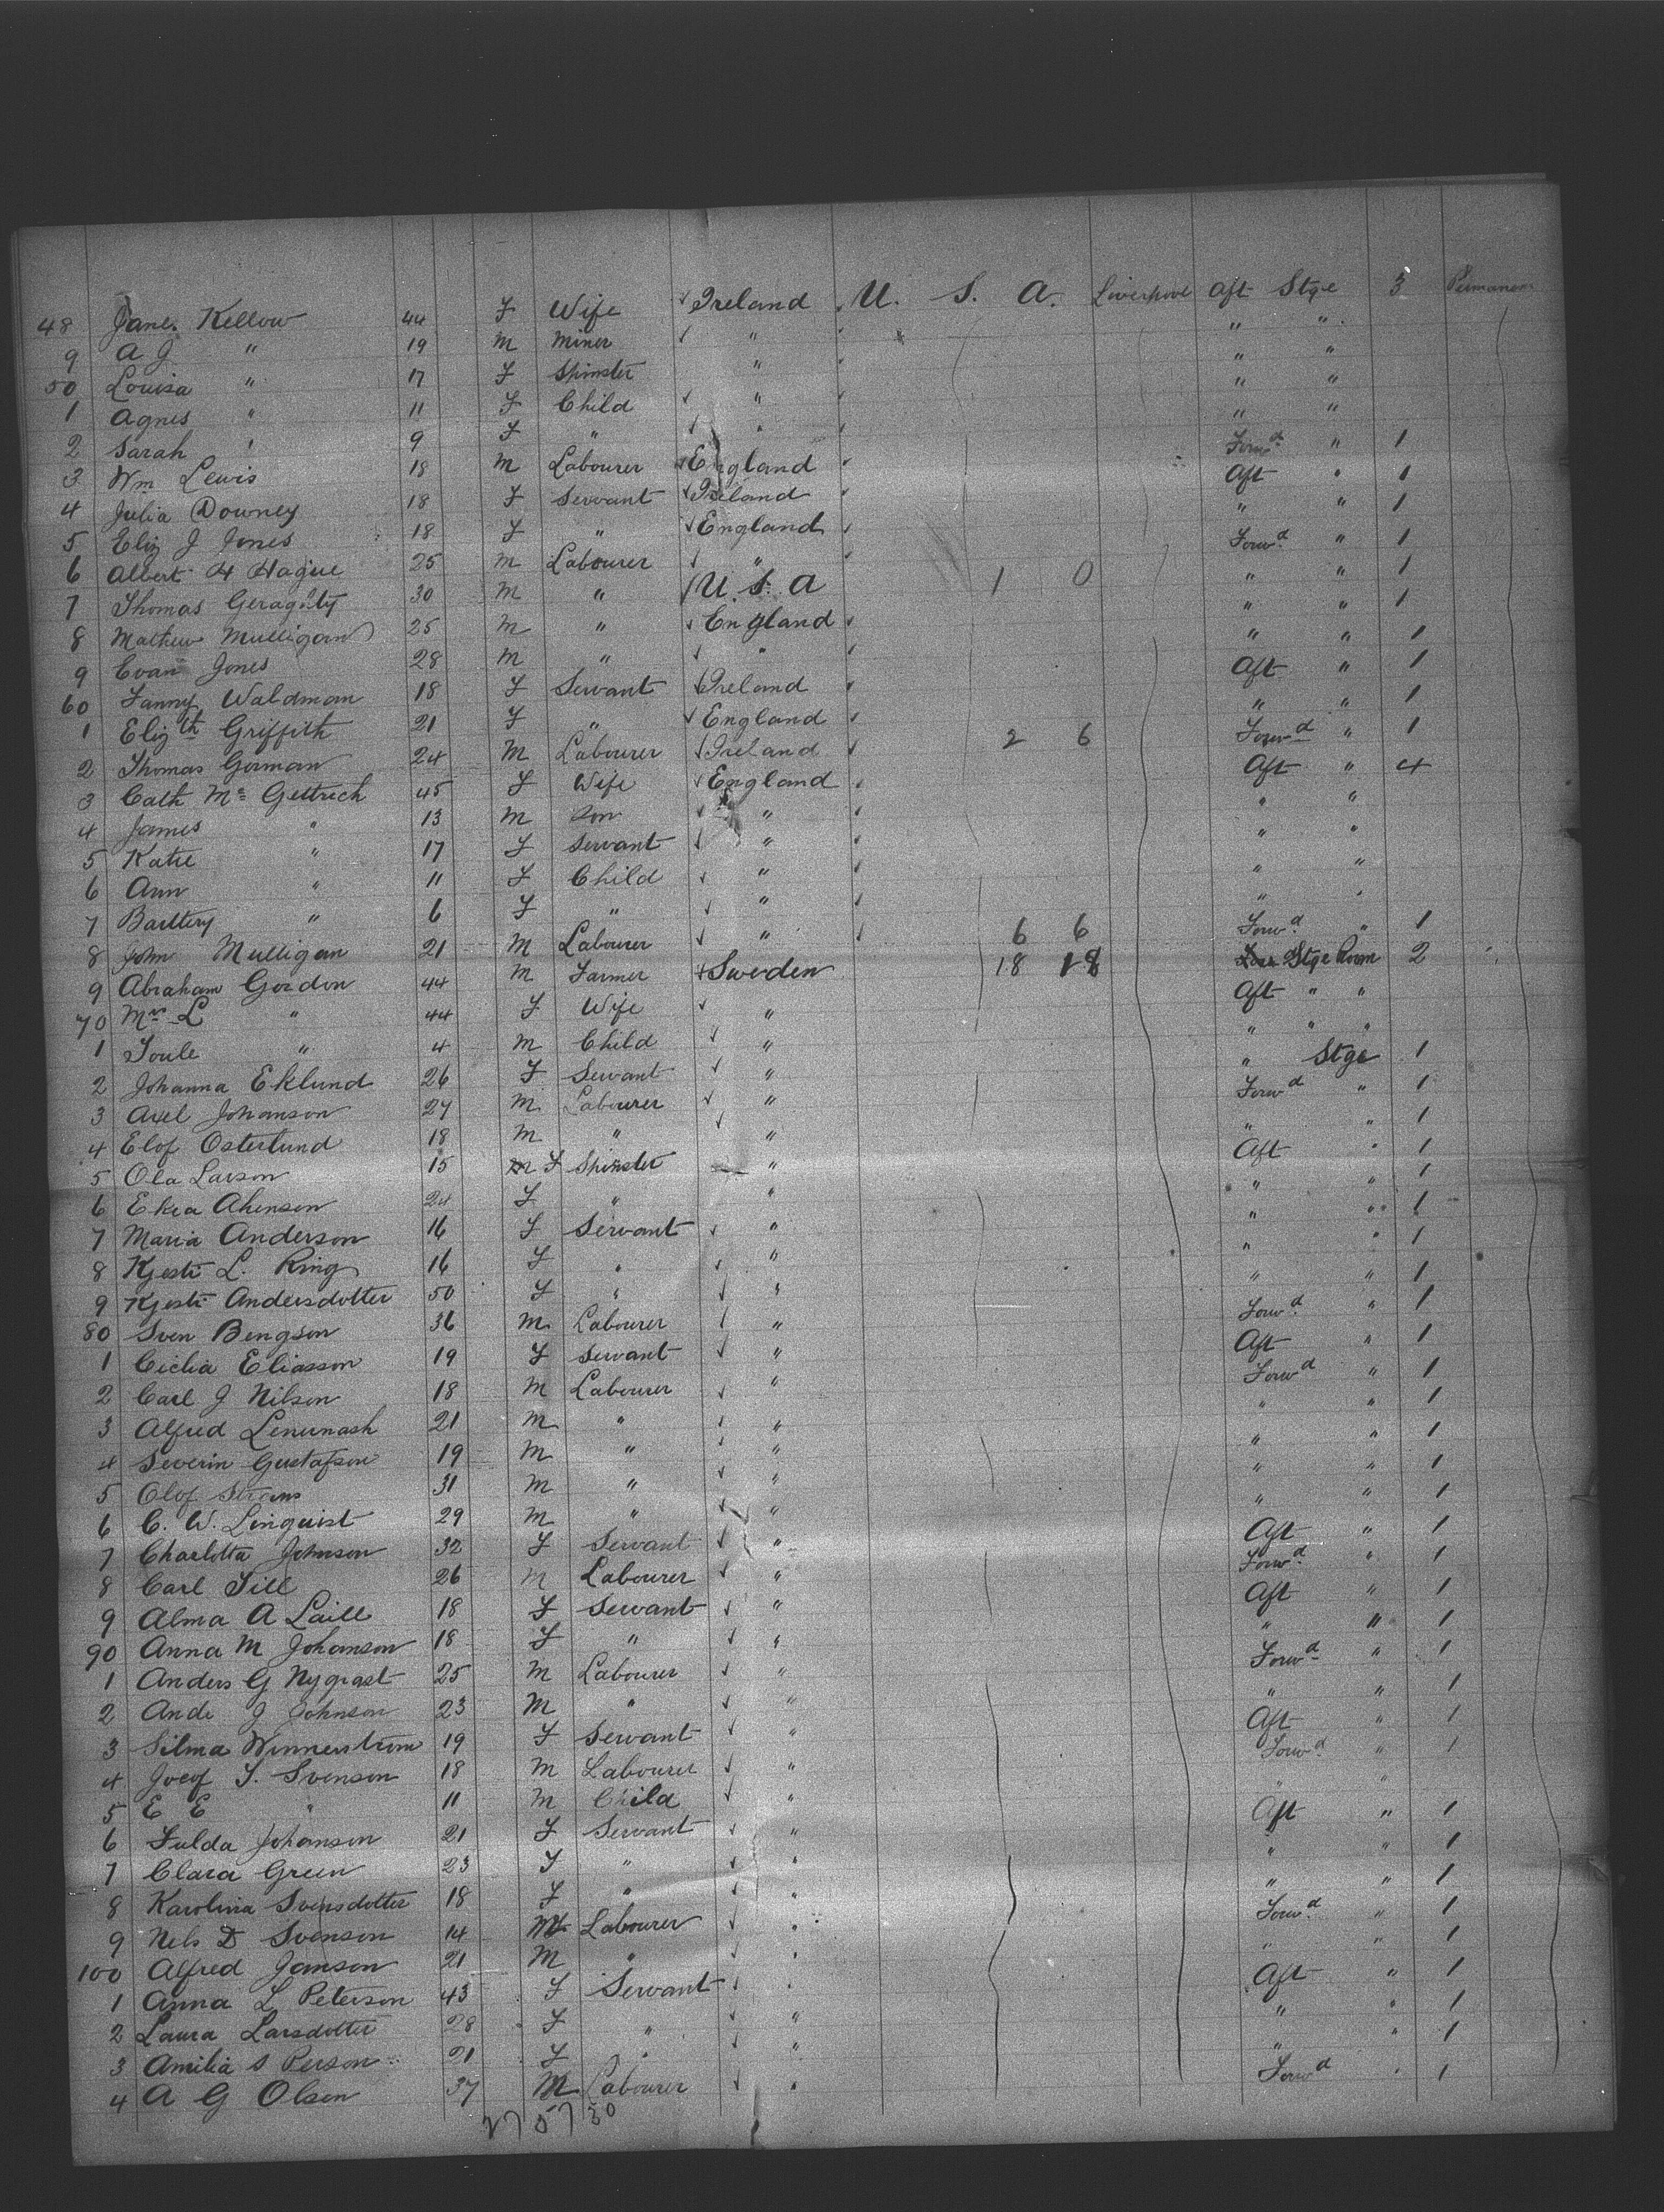 48 Jane Kellow 44 F Wife Ireland U. S. A. Liverpool Aft Stge 3 Permanent
9 A J " 19 M Miner " " "
50 Louisa " 17 F Spinster " " "
1 Agnes " 11 F Child " " "
2 Sarah " 9 F " " " "
3 Wm Lewis 18 M Labourer England Forwd " 1
4 Julia Downey 18 F Servant Ireland Aft " 1
5 Eliz J Jones 18 F " England " " 1
6 Albert H Hague 25 M Labourer " Forwd " 1
7 Thomas Geraghty 30 M " U. S. A 1 0 " " 1
8 Mathew Mulligan 25 M " England " " 1
9 Evan Jones 28 M " " " " 1
60 Fanny Waldman 18 F Servant Ireland Aft " 1
1 Elizth Griffith 21 F " England " " 1
2 Thomas Gorman 24 M Labourer Ireland 2 6 Forwd " 1
3 Cath Mc Gettrich 45 F Wife England Aft " 4
4 James " 13 M Son " " "
5 Katie " 17 F Servant " " "
6 Ann " 11 F Child " " "
7 Barttery " 6 F " " " "
8 John Mulligan 21 M Labourer " 6 6 Forwd " 1
9 Abraham Gordon 44 M Farmer Sweden 18 18 Stge Room 2
70 Mrs L " 44 F Wife " Aft " "
1 Toule " 4 M Child " " " "
2 Johanna Eklund 26 F Servant " " Stge 1
3 Axel Johanson 27 M Labourer " Forwd " 1
4 Elof Osterlund 18 M " " " " 1
5 Ola Larson 15 F Spinster " Aft " 1
6 Ekia Ahenson 24 F " " " " 1
7 Maria Anderson 16 F Servant " " " 1
8 Kjesti L. Ring 16 F " " " " 1
9 Kjesti Andersdotter 50 F " " " " 1
80 Sven Bengson 36 M Labourer " Forwd " 1
1 Cicilia Eliasson 19 F Servant " Aft " 1
2 Carl J Nilson 18 M Labourer " Forwd " 1
3 Alfred Lenunash 21 M " " " " 1
4 Severin Gustafson 19 M " " " " 1
5 Olof Stroms 31 M " " " " 1
6 C. W. Linquist 29 M " " " " 1
7 Charlotta Johnson 32 F Servant " Aft " 1
8 Carl Till 26 M Labourer " Forwd " 1
9 Alma A Laill 18 F Servant " Aft " 1
90 Anna M Johanson 18 F " " " " 1
1 Anders G Nygrast 25 M Labourer " Forwd " 1
2 Ande J Johnson 23 M " " " " 1
3 Silma Winnerstrom 19 F Servant " Aft " 1
4 Jocof S. Svenson 18 M Labourer " Forwd " 1
5 E E " 11 M Child " " "
6 Fulda Johanson 21 F Servant " Aft " 1
7 Clara Green 23 F " " " " 1
8 Karolina Svensdotter 18 F " " " " 1
9 Nels D Svenson 14 M Labourer " Forwd " 1
100 Alfred Janson 21 M " " " " 1
1 Anna L Peterson 43 F Servant " Aft " 1
2 Laura Larsdotter 28 F " " " " 1
3 Amilia S Person 21 F " " " " 1
4 A G Olsen 37 M Labourer " Forwd " 1
27 57 30